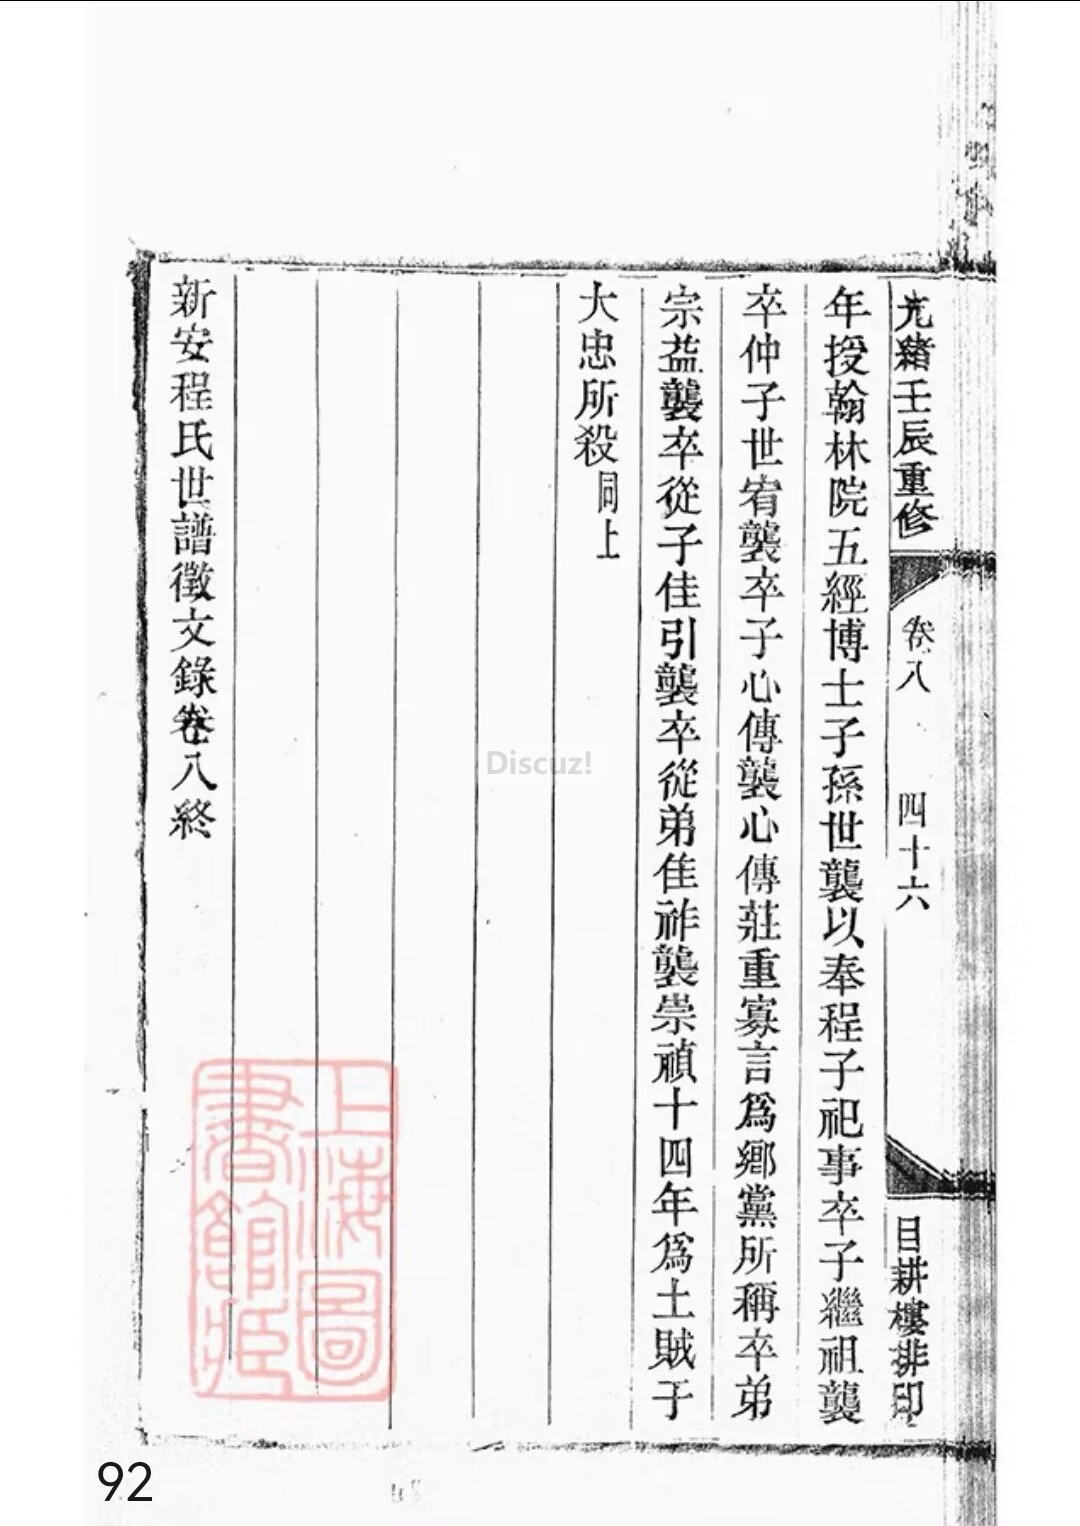 光緒壬辰重修
卷八
四十六
目耕樓排印
年授翰林院五經博士子孫世襲以奉程子祀事卒子繼祖襲
卒仲子世宥襲卒子心傳襲心傳莊重寡言爲鄉黨所稱卒弟
宗益襲卒從子佳引襲卒從弟佳祚襲崇禎十四年爲土賊于
大忠所殺同上
新安程氏世譜徵文錄卷八終
上海圖
書館藏
Discuz!
92